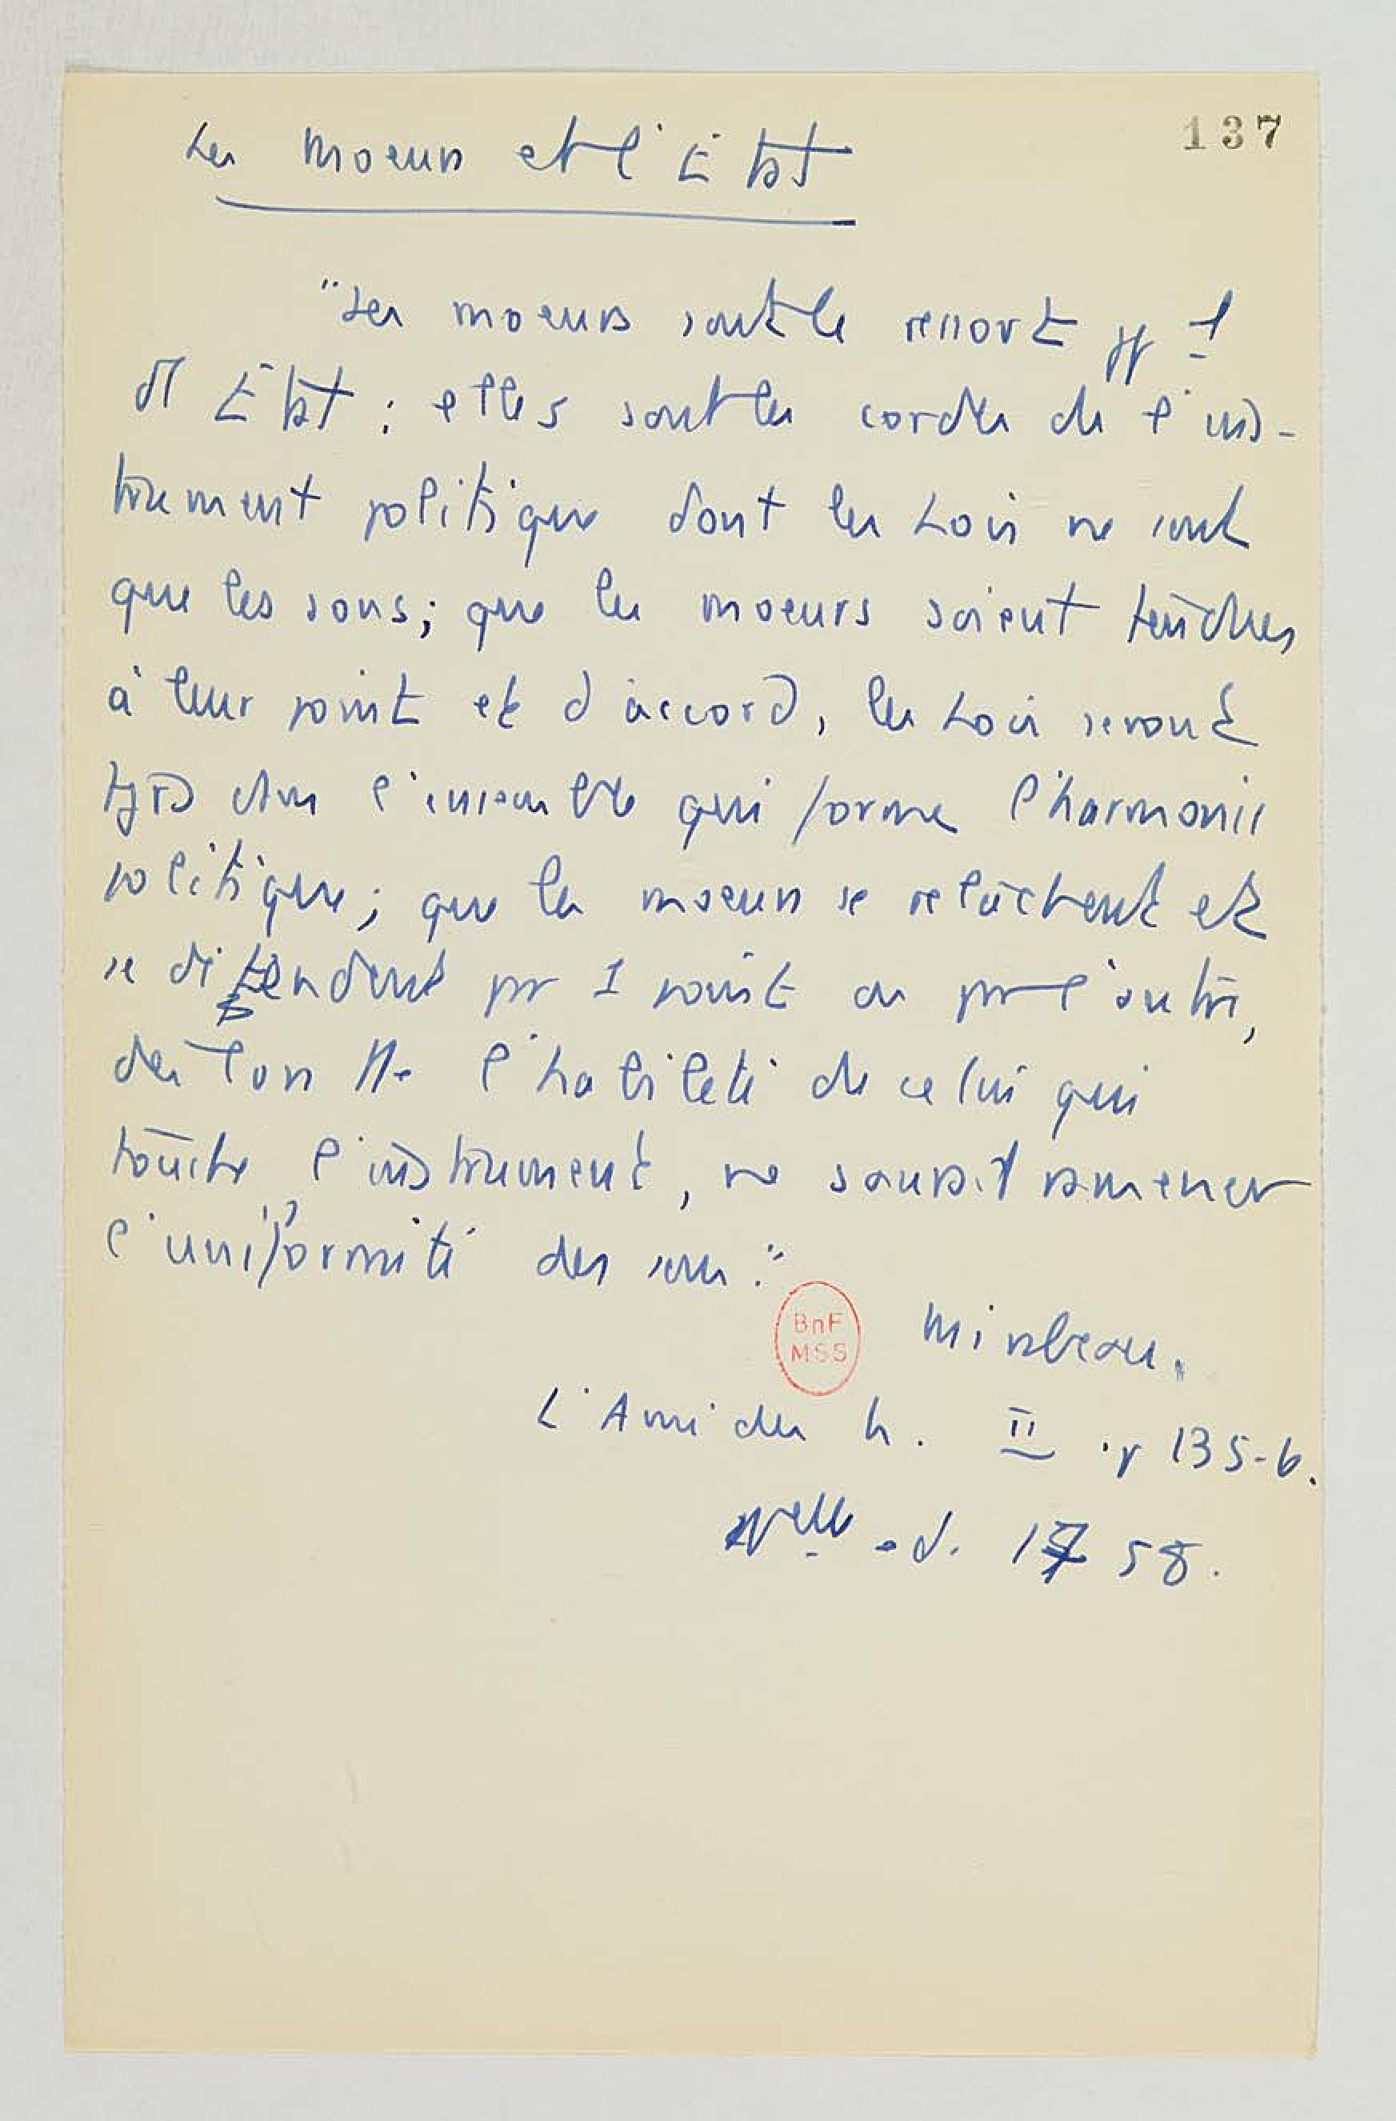 137
Les moeurs et l'Etat
"Les moeurs sont le ressort ppl
d'1 Etat : elles sont les cordes de l'ins-
trument politique dont les Lois ne sont
que les sons ; que les moeurs soient tendues
à leur point et d'accord, les Lois seront
tjrs dans l'ensemble qui forme l'harmonie
politique ; que les moeurs se relâchent et
se détendent par 1 point ou par l'autre,
des lors tte l'habileté de celui qui
touche l'instrument, ne saurait ramener
l'uniformité des sons."
BnF
MSS
Mirabeau.
L'Ami des h. II p 135-6.
Nelle ed. 1758.